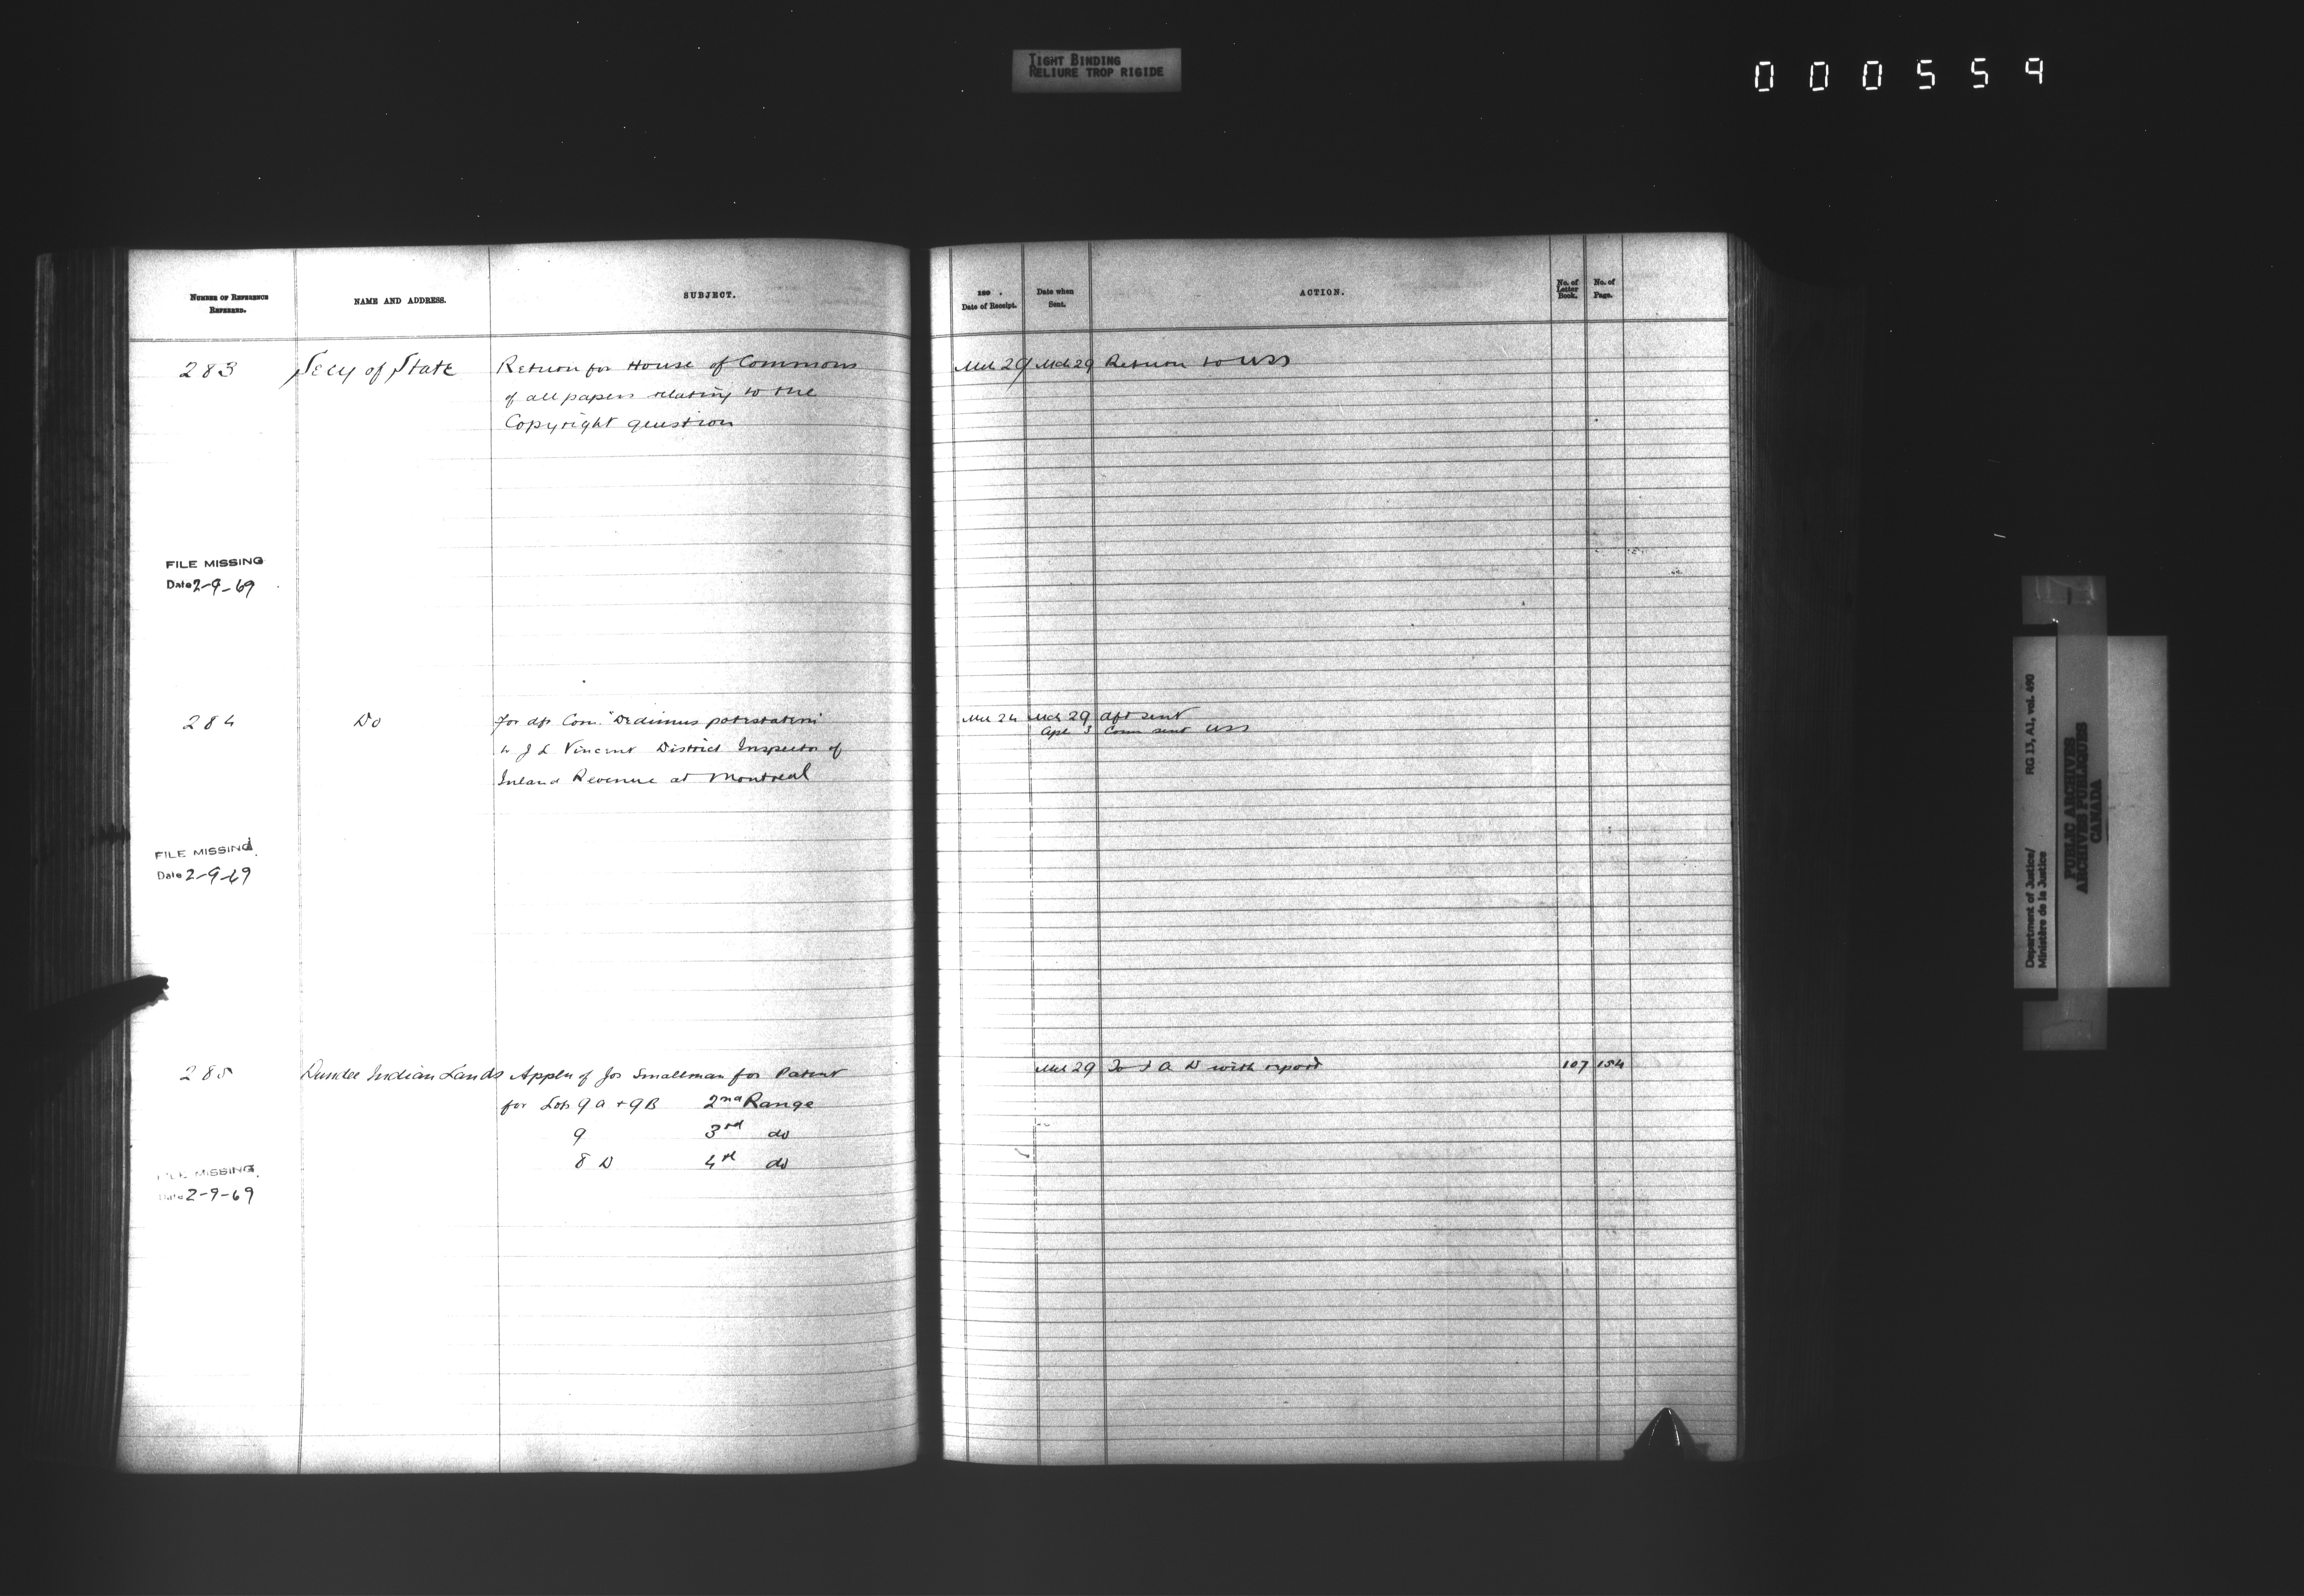 TIGHT BINDING
RELIURE TROP RIGIDE
000559
NUMBER OF REFERENCE
REFERRED.
NAME AND ADDRESS.
SUBJECT.
189 .
Date of Receipt.
Date when
Sent.
ACTION.
No. of
Letter
Book.
No. of
Page.
283 Secy of State Return for House of Commons Mch 29 Mch 29 Return to USS
of all papers relating to the
Copyright question
FILE MISSING
Date 2-9-69
284 Do for dft Com. "Dedimus potestatem" Mch 24 Mch 29 dft sent
Apl 3 Comn sent USS
to J L Vincent District Inspector of
Inland Revenue at Montreal
FILE MISSING
Date 2-9-69
285 Dundee Indian Lands Appln of Jos Smallman for Patent Mch 29 To I A D with report 107 154
for Lots 9A + 9B 2nd Range
9 3rd do
8 D 4th do
FILE MISSING
Date 2-9-69
Department of Justice/
Ministère de la Justice
RG 13, A1, vol. 490
PUBLIC ARCHIVES
ARCHIVES PUBLIQUES
CANADA